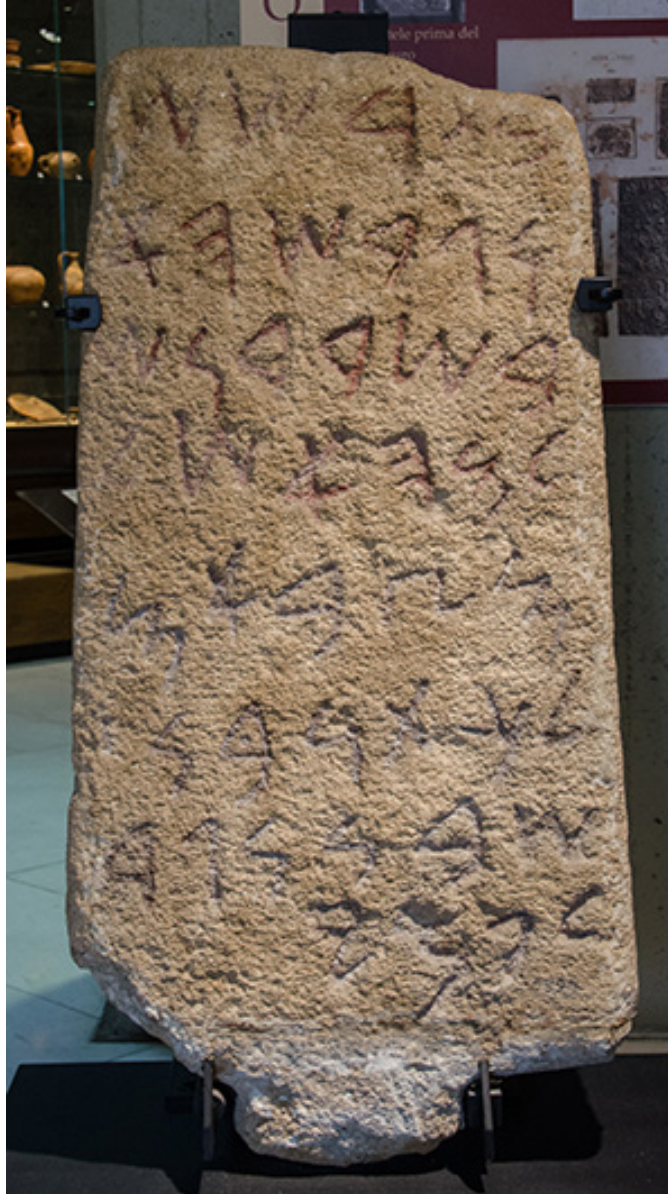 𐤁𐤕𐤓𐤔𐤔
𐤅𐤂𐤓𐤔𐤄𐤀
𐤁𐤔𐤓𐤃𐤍𐤔
𐤋𐤌𐤄𐤀𐤔𐤋
𐤌𐤑𐤁𐤀𐤌
𐤋𐤊𐤕𐤍𐤁𐤍
𐤔𐤁𐤍𐤍𐤂𐤃
𐤋𐤐𐤌𐤉
prima del